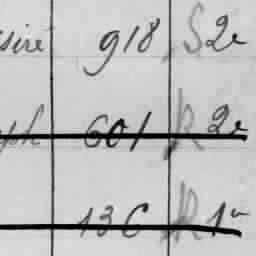 siré 918 S 2e
ph 601 R 2e
136 R 1e